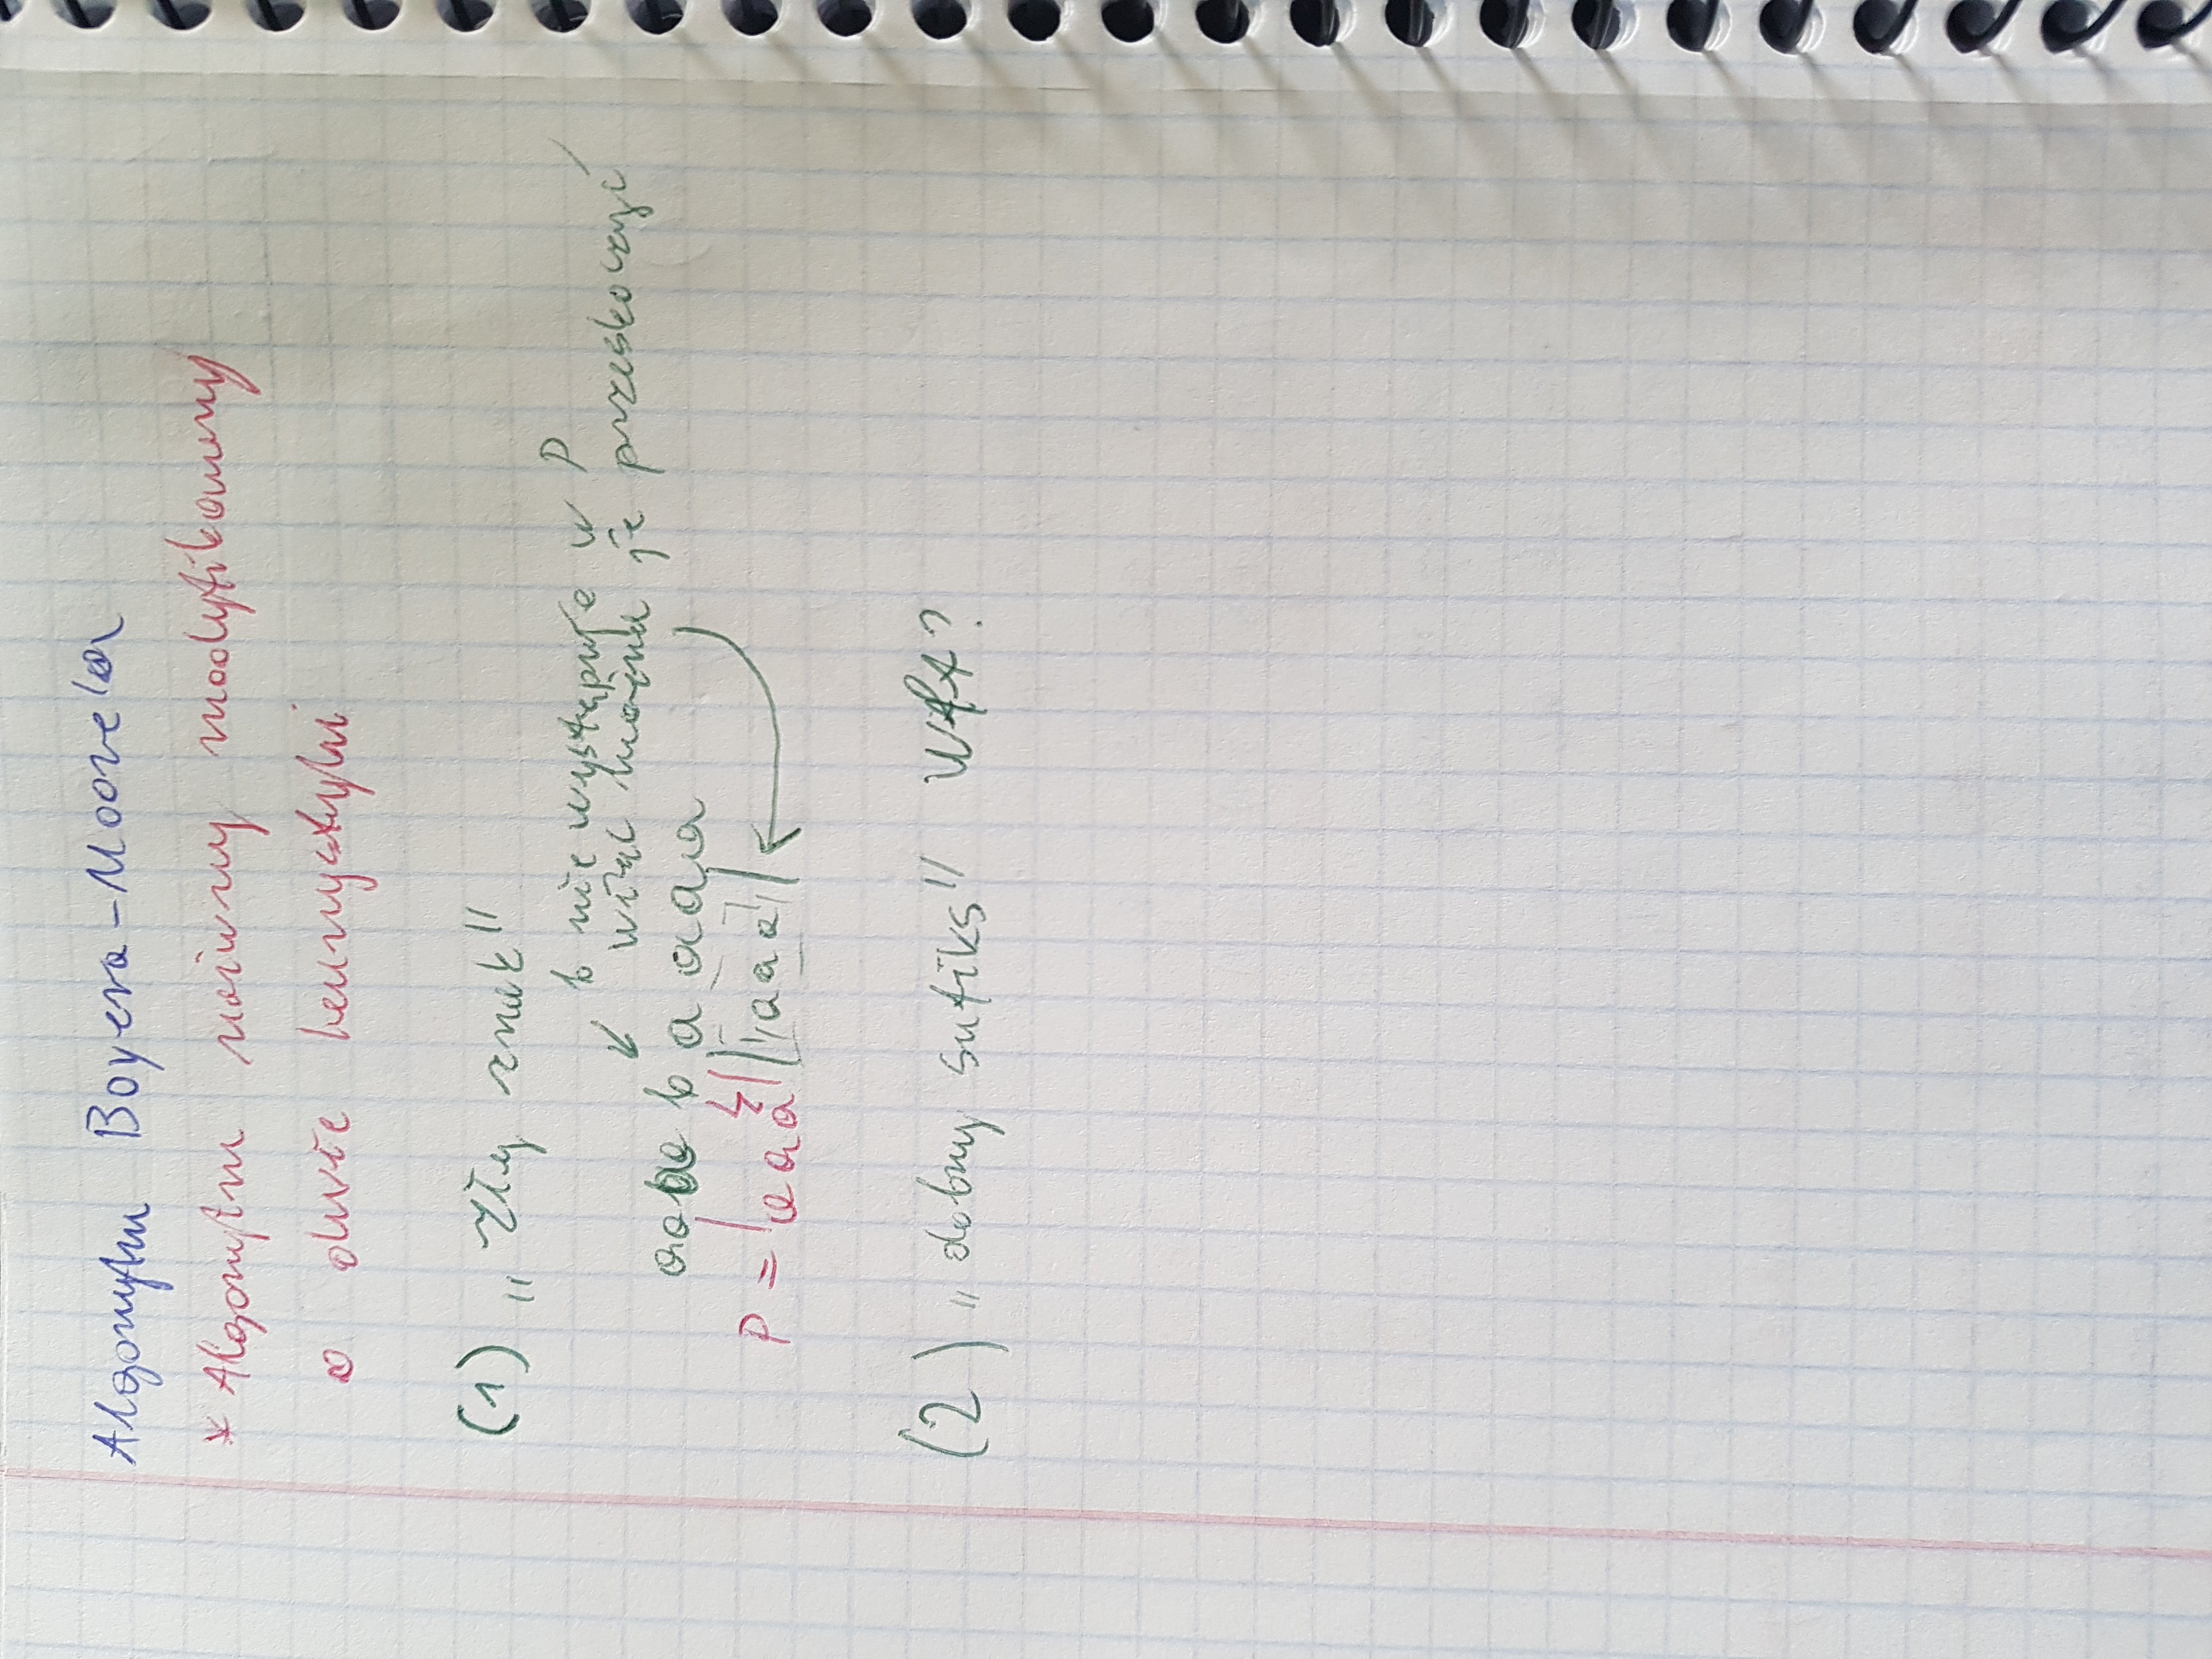 Algorytm Boyera-Moore'a
* Algorytm naiwny modyfikowany
o dwie heurystyki
(1) „Zły znak"
b nie występuje w P
więc można je przeskoczyć
b a a a a
P = aaa aaa
(2) „dobry sufiks" Wtf?